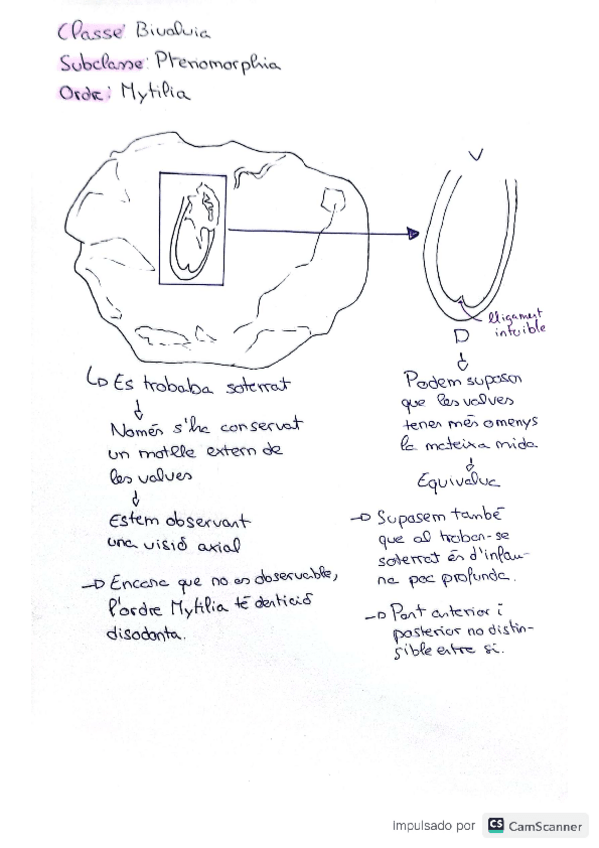 Classe: Bivalvia
Subclasse: Ptenomorphia
Ordre: Mytilia
V
lligament
intuïble
D
Es trobaba soterrat
Només s'ha conservat
un motlle extern de
les valves
Estem observant
una visió axial
Encara que no es observable,
l'ordre Mytilia té dentició
disodonta.
Podem suposar
que les valves
tenen més o menys
la mateixa mida
Equivalva
Suposem també
que al troban-se
soterrat és d'infau-
na poc profunda.
Part anterior i
posterior no distin-
gible entre si.
Impulsado por CS CamScanner